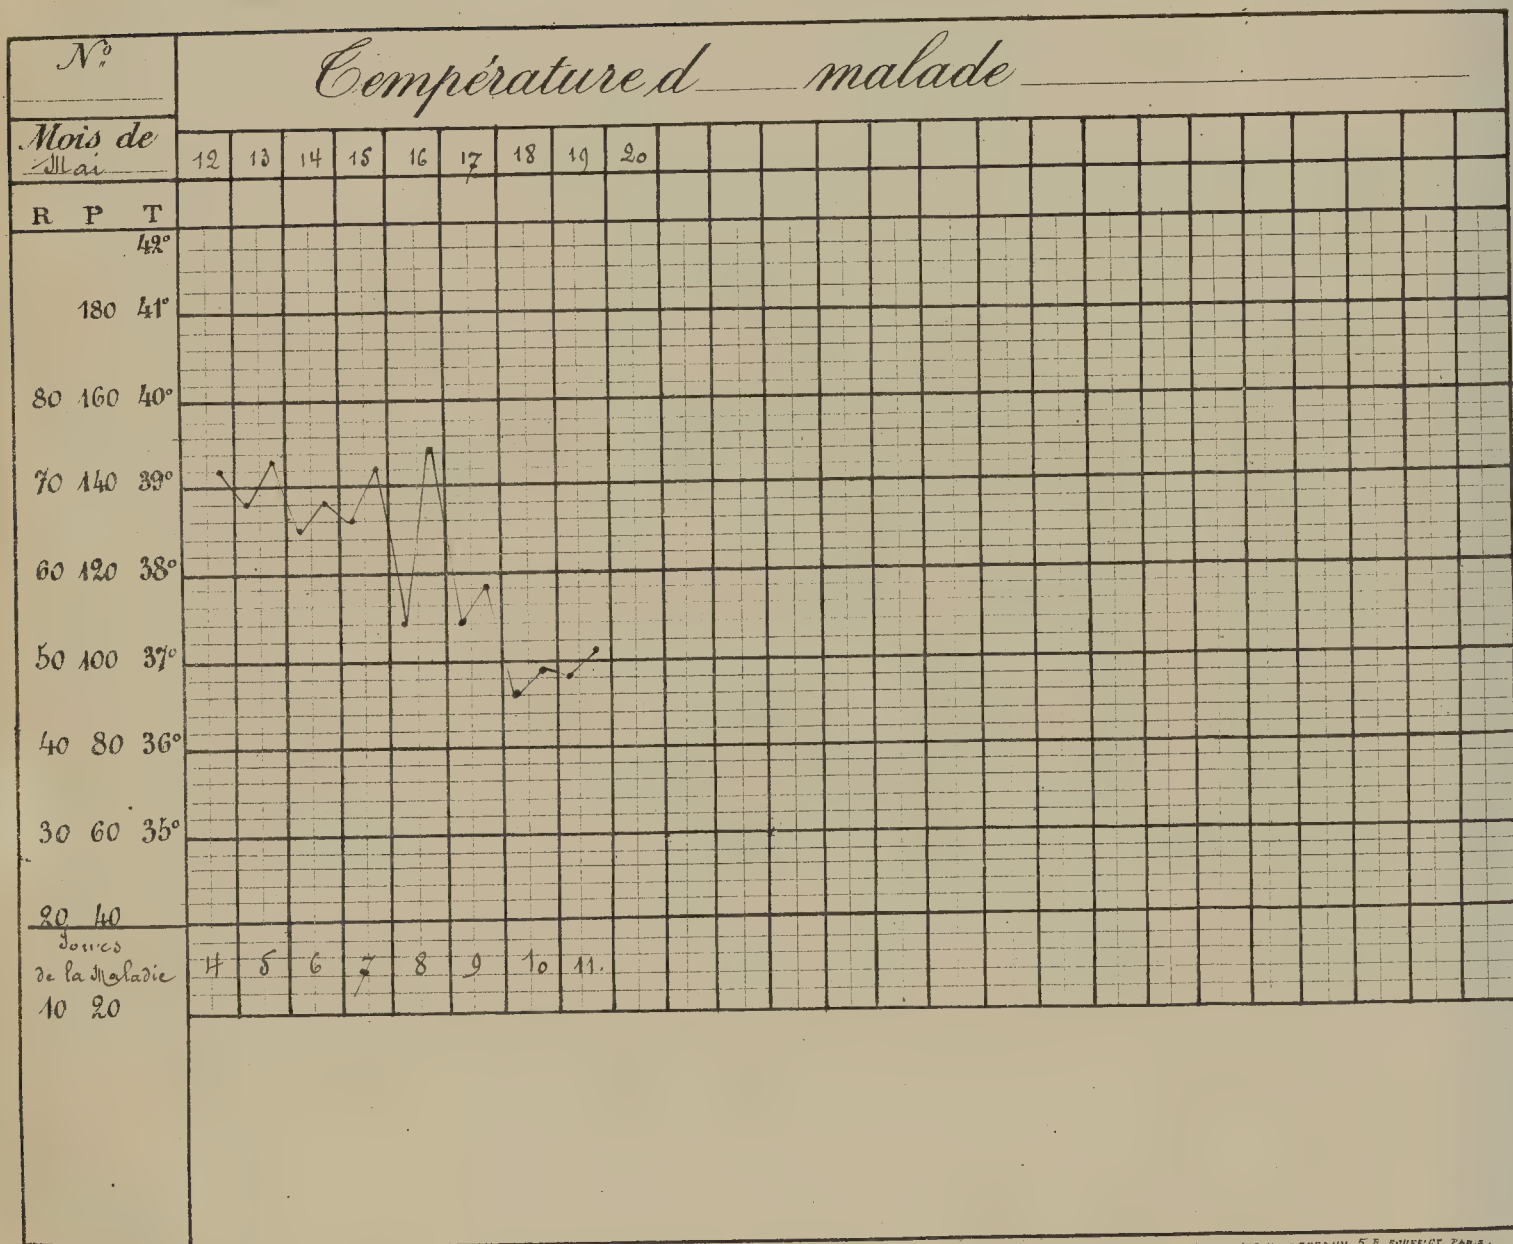 Nº
Température d malade
Mois de
Mai
12 13 14 15 16 17 18 19 20
R P T
42°
180 41°
80 160 40°
70 140 39°
60 120 38°
50 100 37°
40 80 36°
30 60 35°
20 40
Jours
de la Maladie 4 5 6 7 8 9 10 11.
10 20
PARIS.